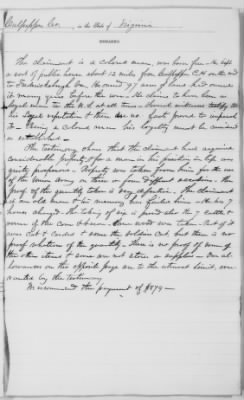 Culpepper Co. in the State of Virginia
REMARKS.
The claimant is a colored man, was born free. He kept
a sort of public house about 12 miles from Culpepper C.H. on the road
to Fredericksburg Va. He owned 97 acres of land had owned
it many years before the war. He claims to have been a
loyal man to the U.S. at all times. Several witnesses testify to
his loyal reputation & there are no facts found to
it. Being a colored man his loyalty must be considered
as established.
The testimony shows that the claimant had acquired
considerable property & for a man in his position in life was
quite prosperous. Property was taken from him for the use
of the union army on three or four different occasions. The
proof of the quantity taken is very defective. The claimant
is an old man & his memory has failed him. He has 7
charged. The taking of six is proved also the 7 cattle &
some of the corn & bacon. Some wood was taken. Part of it
was cut & corded & some the soldiers cut, but there is no
proof whatever of the quantity. There is no proof of some of
the other items & some are not stores or supplies. Our
allowances on the opposite page are to the utmost limit, warranted
by the testimony
We recommend the payment of $879—